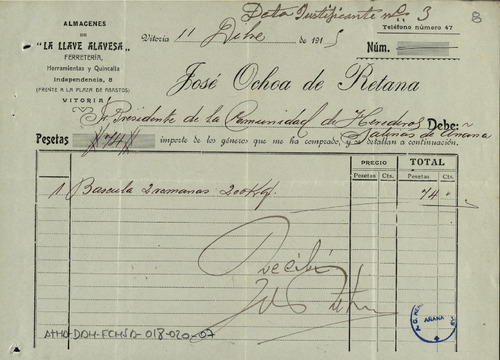 Data Justificante nº 3
8
ALMACENES
DE
"LA LLAVE ALAVESA"
FERRETERÍA,
Herramientas y Quincalla
Independencia, 8
(FRENTE A LA PLAZA DE ABASTOS)
VITORIA
Teléfono número 47
Vitoria 11 Dbre de 1915
Núm.
José Ochoa de Retana
Sr Presidente de la Comunidad de Herederos Debe:
Salinas de Añana
Pesetas 74 importe de los géneros que me ha comprado, y se detallan a continuación.
PRECIO TOTAL
Pesetas Cts. Pesetas Cts.
1 Bascula 2 romanas 200 Kg. 74
Recibí
AÑANA
ATHA-DAH-FCHSA-018-020-07